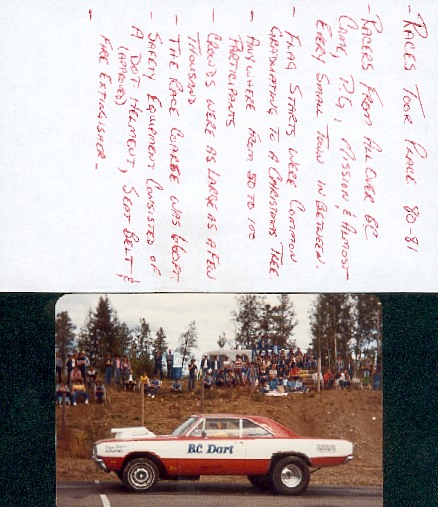 - RACES TOOK PLACE 80-81
- RACERS FROM ALL OVER BC
P.G., MISSION & ALMOST
EVERY SMALL TOWN IN BETWEEN.
- FLAG STARTS WERE COMMON
GRADUATING TO A CHRISTMAS TREE
- ANYWHERE FROM 50 TO 100
PARTICIPANTS
- CROWDS WERE AS LARGE AS A FEW
THOUSAND
- THE RACE COARSE WAS 660FT
- SAFETY EQUIPMENT CONSISTED OF
A DOT HELMENT, SEAT BELT &
(APPROVED)
FIRE EXTINGUISHER -
B.C. Dart